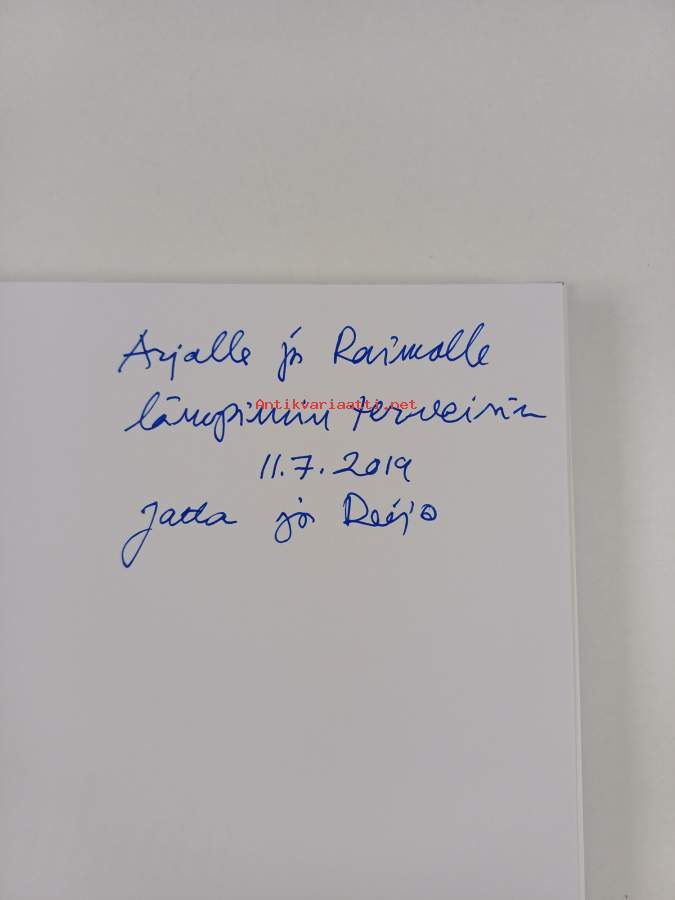 Arjalle ja Raimolle
lämpimin terveisin
Antikvariaatti.net
11.7.2019
Jatta ja Reijo